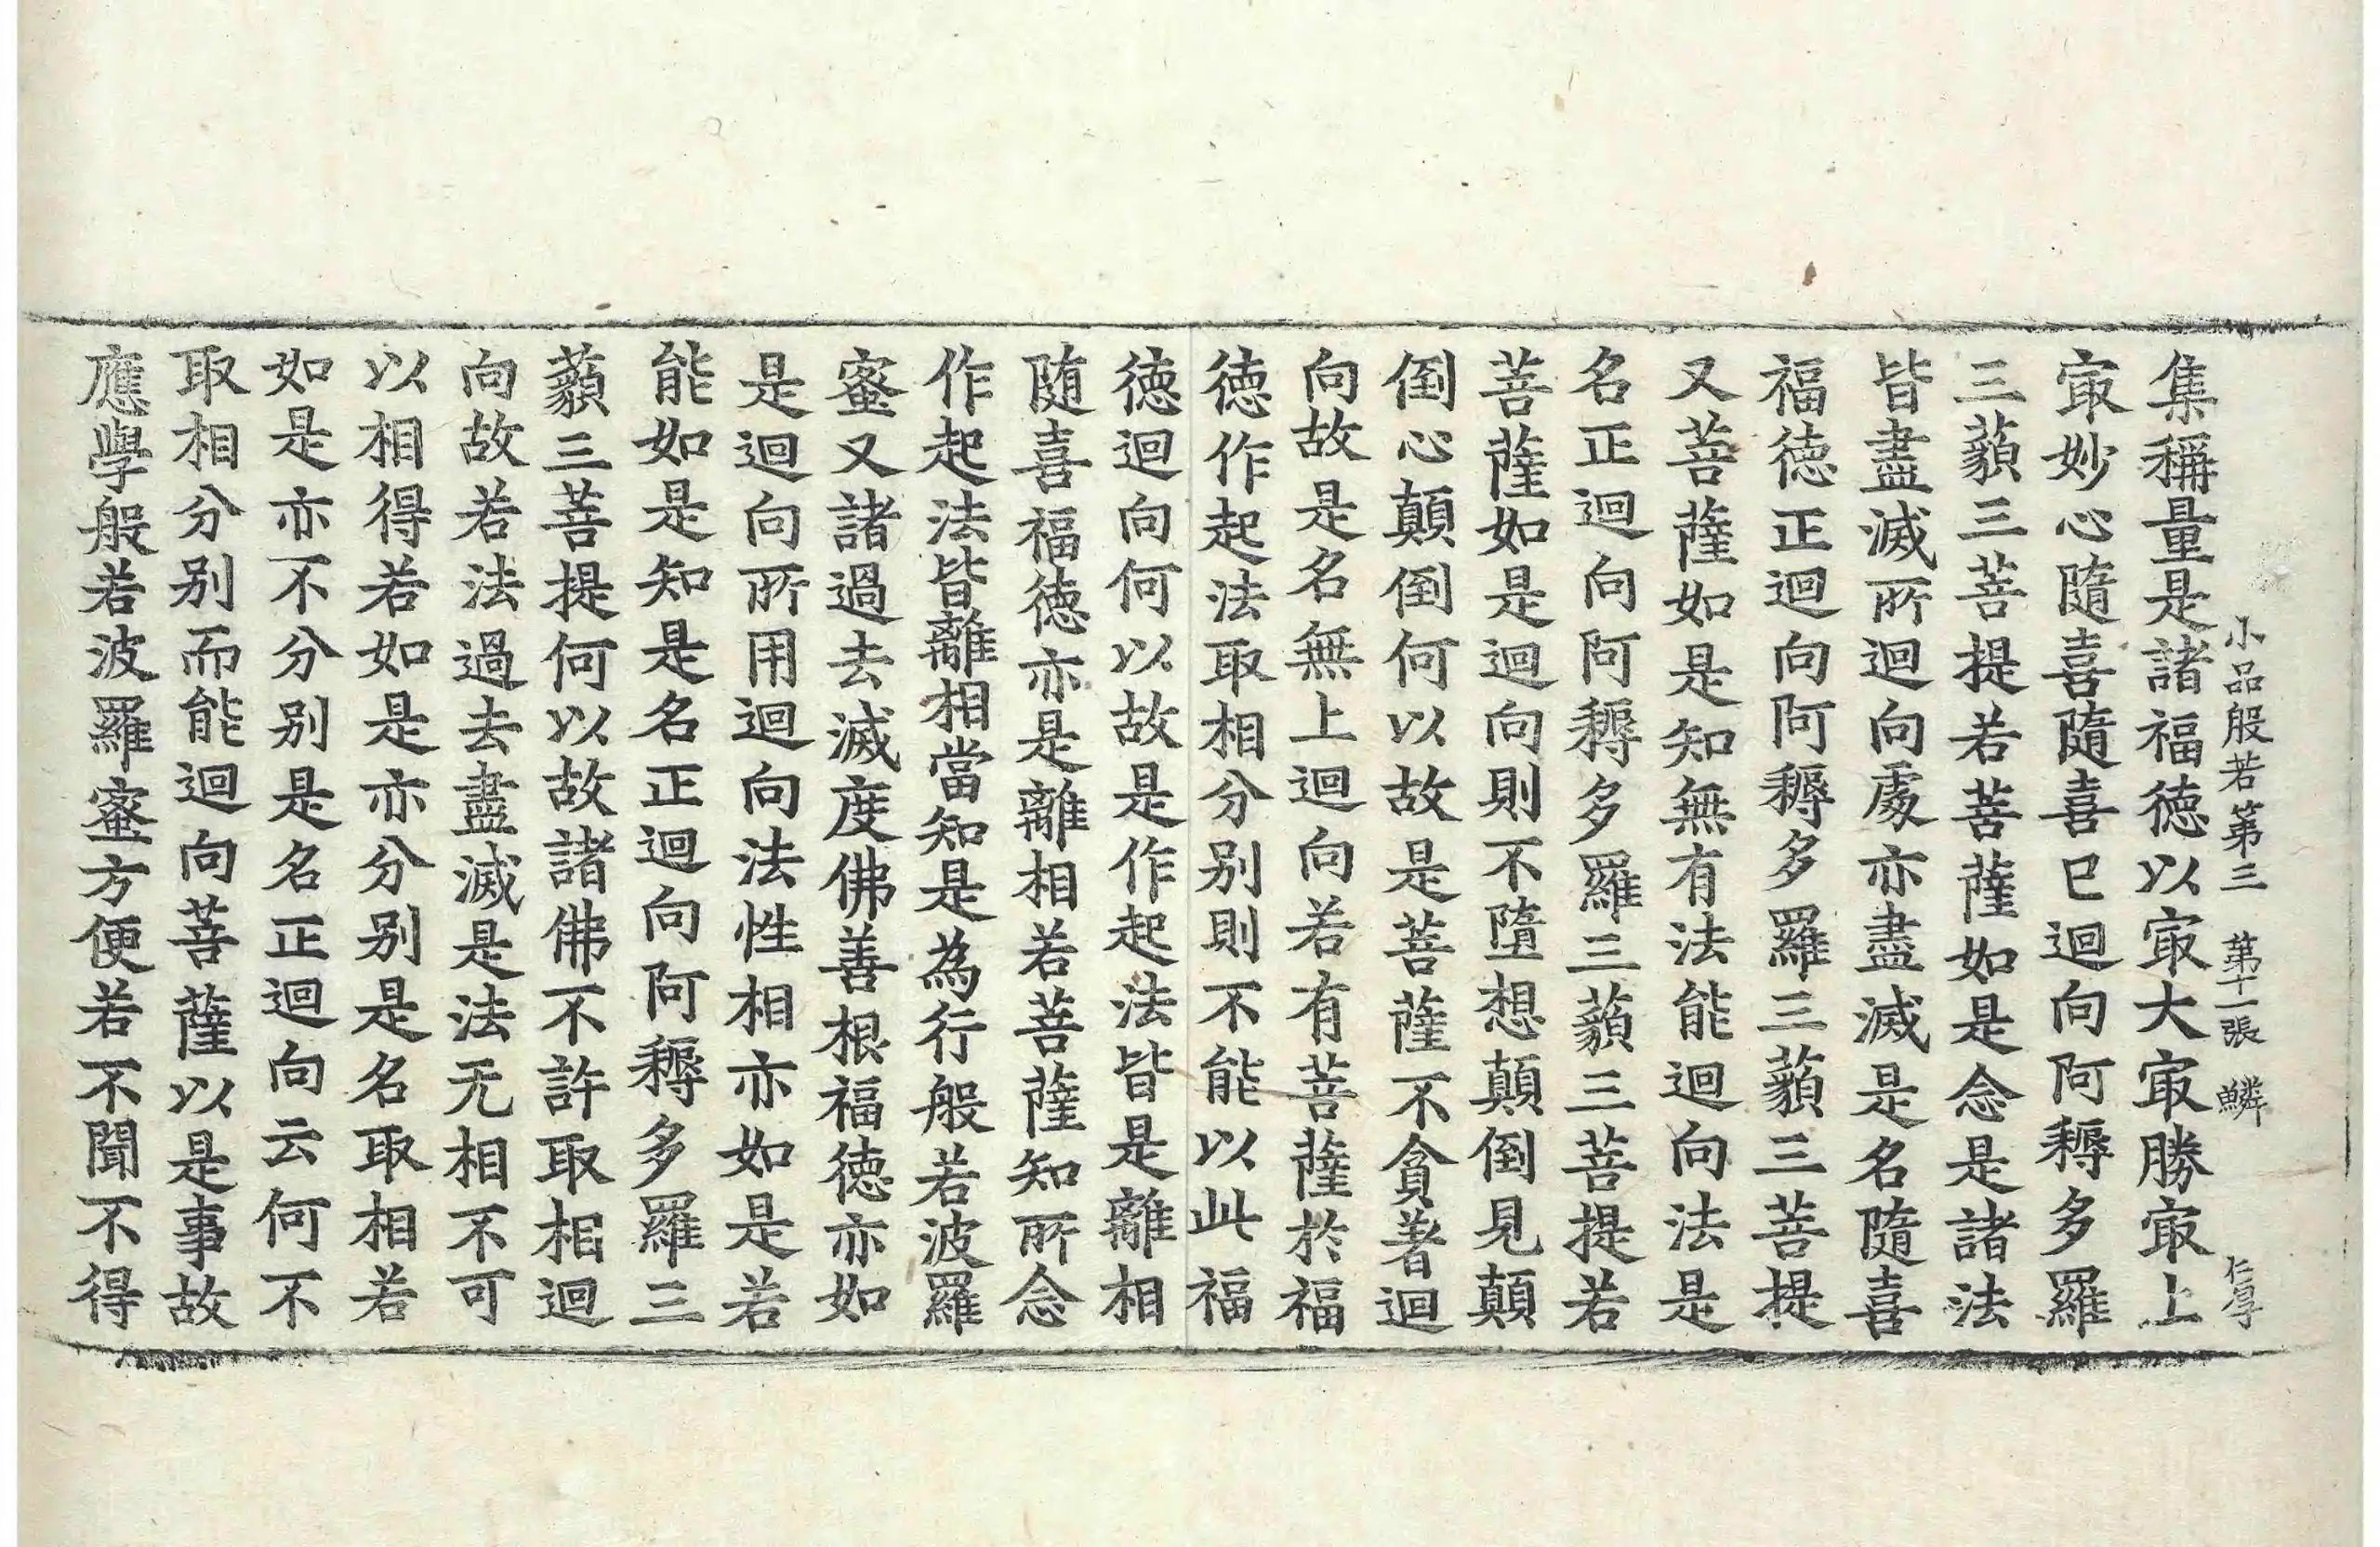 小品般若第三 第十一張 鱗 仁厚
集稱量是諸福德以㝡大㝡勝㝡上
㝡妙心隨喜隨喜已迴向阿耨多羅
三藐三菩提若菩薩如是念是諸法
皆盡滅所迴向處亦盡滅是名隨喜
福德正迴向阿耨多羅三藐三菩提
又菩薩如是知無有法能迴向法是
名正迴向阿耨多羅三藐三菩提若
菩薩如是迴向則不墮想顛倒見顛
倒心顛倒何以故是菩薩不貪著迴
向故是名無上迴向若有菩薩於福
德作起法取相分别則不能以此福
德迴向何以故是作起法皆是離相
随喜福德亦是離相若菩薩知所念
作起法皆離相當知是為行般若波羅
蜜又諸過去滅度佛善根福德亦如
是迴向所用迴向法性相亦如是若
能如是知是名正迴向阿耨多羅三
藐三菩提何以故諸佛不許取相迴
向故若法過去盡滅是法无相不可
以相得若如是亦分别是名取相若
如是亦不分别是名正迴向云何不
取相分别而能迴向菩薩以是事故
應學般若波羅蜜方便若不聞不得